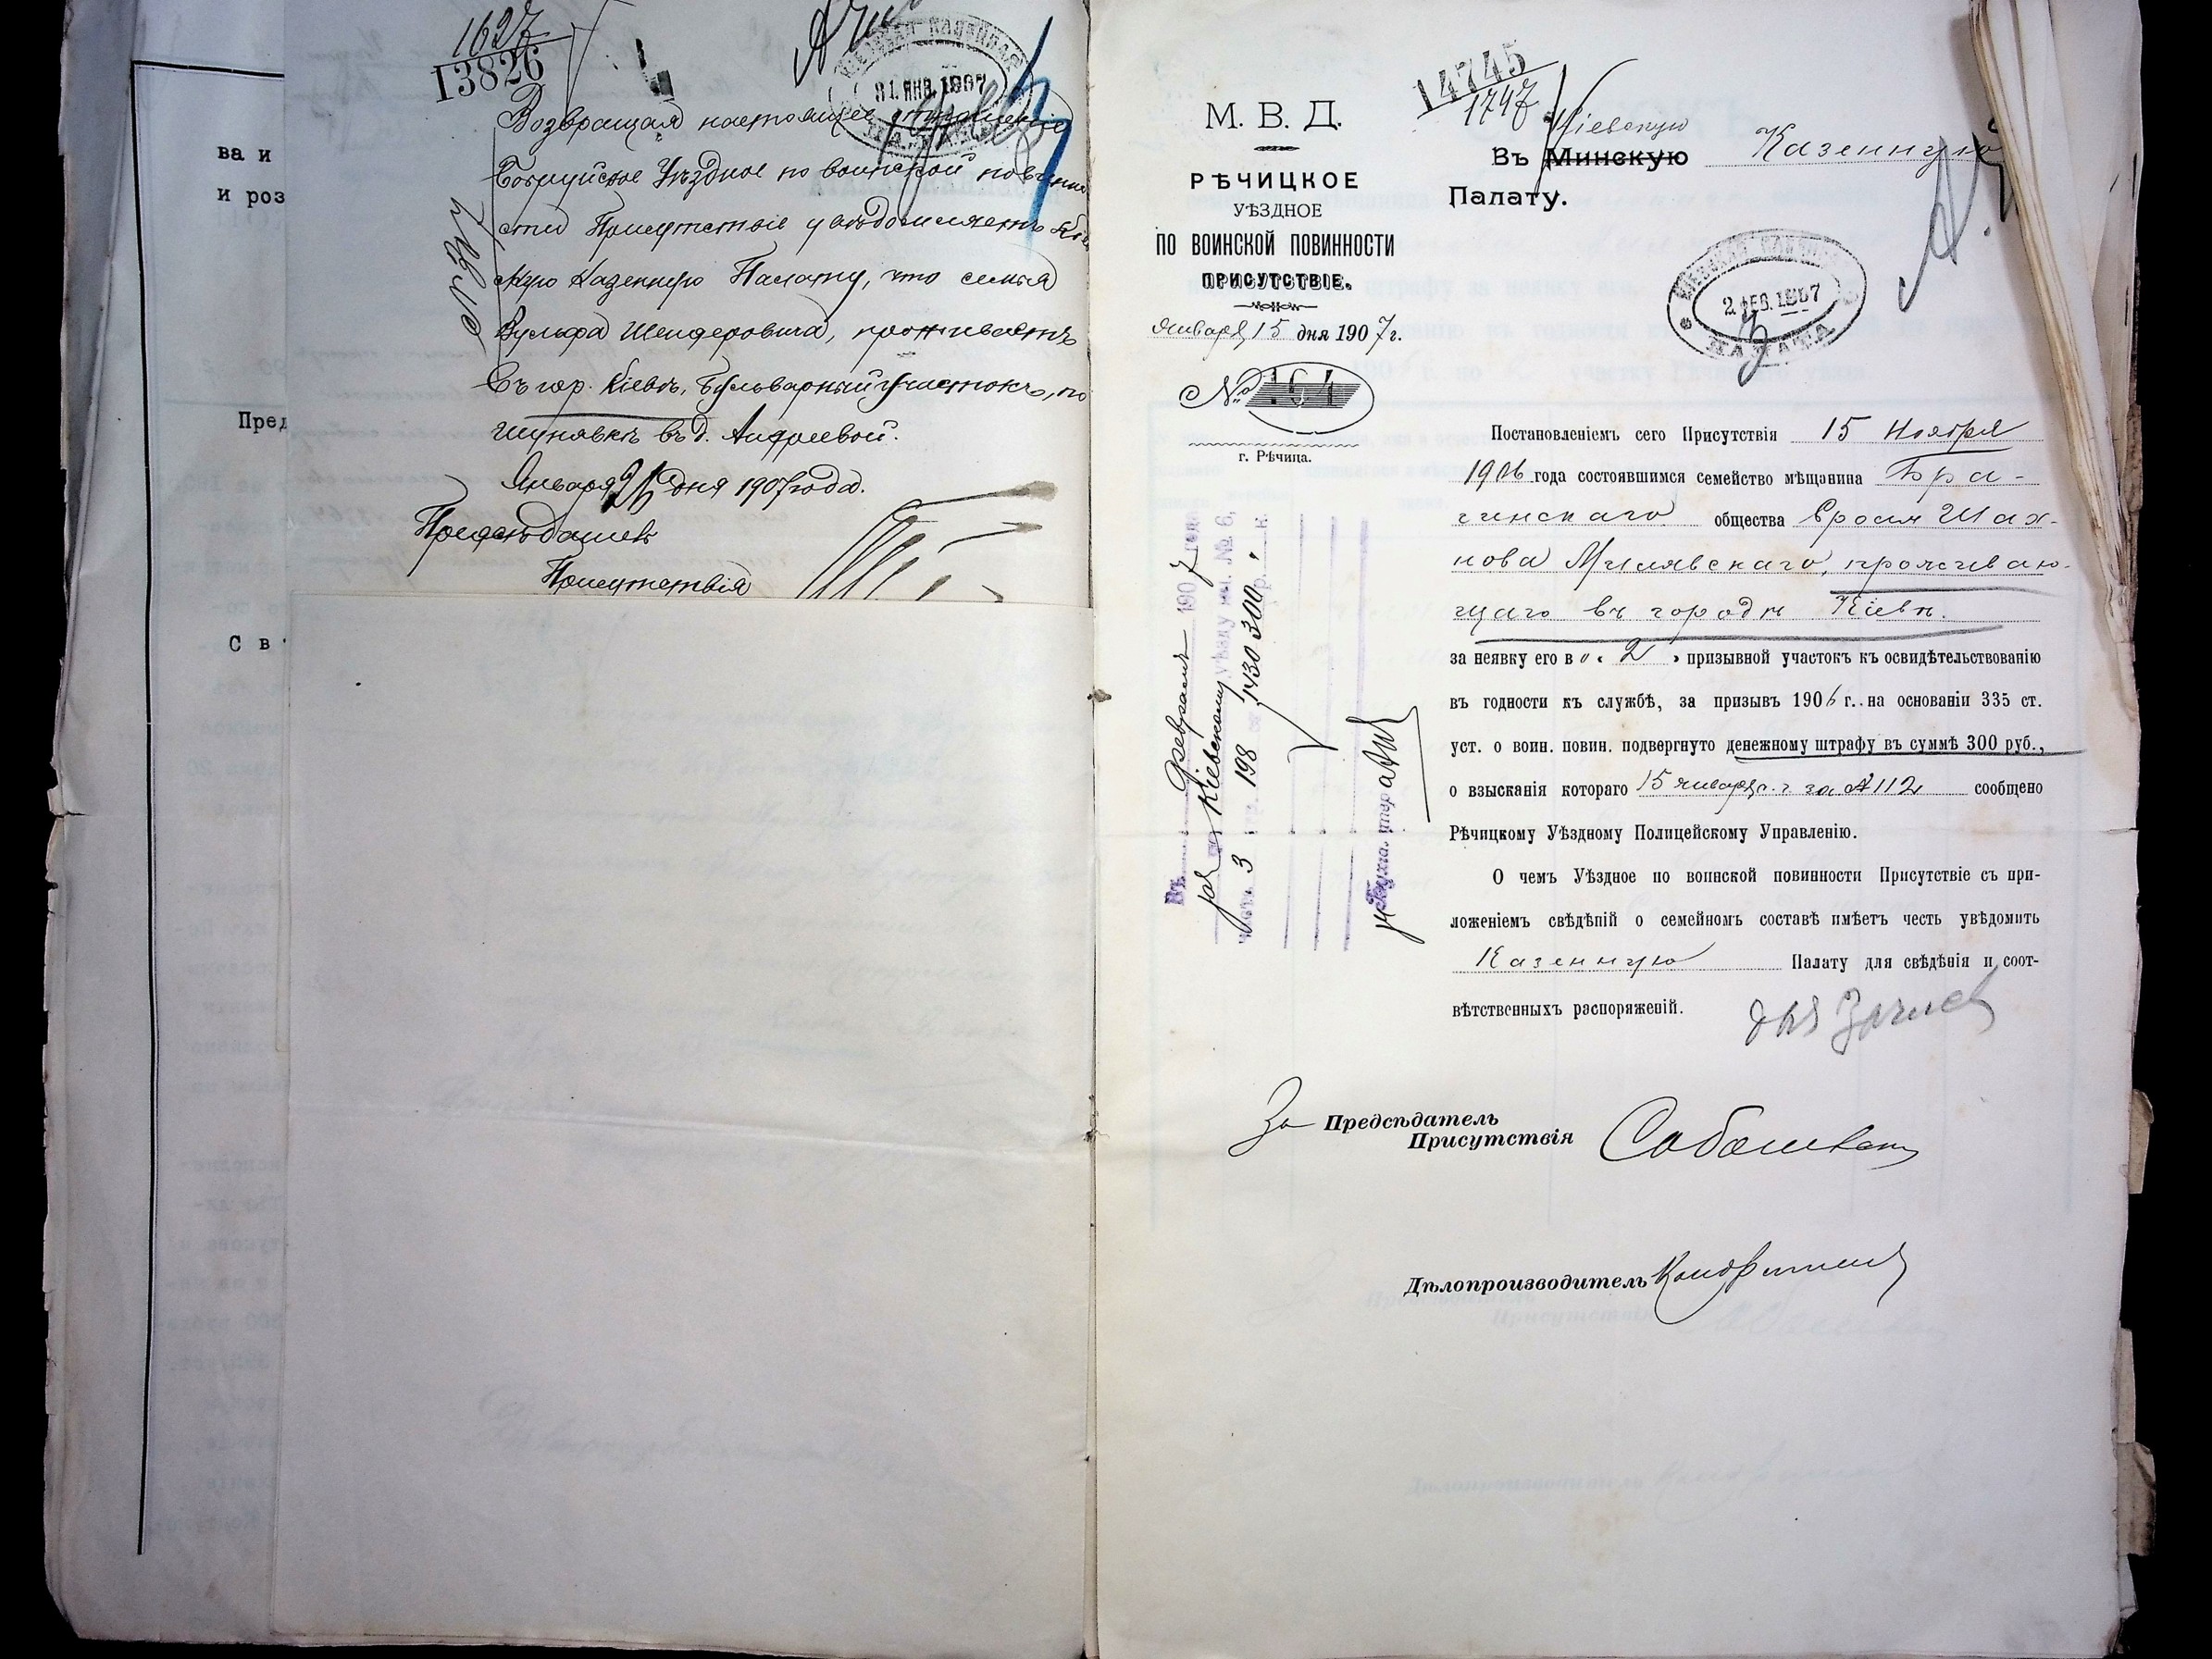 ва и
и роз
Пред
С в
1627
13826
КІЕВСКАЯ КАЗЕННАЯ
31 ЯНВ. 1907
ПАЛАТА
Возвращая настоящее отношеніе
Бобруйское Уѣздное по воинской повинно
сти Присутствіе увѣдомляетъ Кіев
скую Казенную Палату, что семья
Вульфа Шендеровича, проживаетъ
въ гор. Кіевѣ, Бульварный участокъ, по
въ д. Андреевой.
Января 26 дня 1907 года.
Предсѣдатель
Присутствія
М. В. Д.
РѢЧИЦКОЕ
УѢЗДНОЕ
ПО ВОИНСКОЙ ПОВИННОСТИ
ПРИСУТСТВІЕ.
Января 15 дня 1907 г.
№ 164
г. Рѣчица.
14745
1747
Кіевскую
Въ Минскую Казенную
Палату.
КІЕВСКАЯ КАЗЕННАЯ
2 ФЕВ. 1907
ПАЛАТА
Постановленіемъ сего Присутствія 15 Ноября
1906 года состоявшимся семейство мѣщанина Бра-
гинскаго общества Сроля Шах-
нова Милявскаго, проживаю-
щаго въ городѣ Кіевѣ.
за неявку его в о « 2 » призывной участокъ къ освидѣтельствованію
въ годности къ службѣ, за призывъ 1906 г. на основаніи 335 ст.
уст. о воин. повин. подвергнуто денежному штрафу въ суммѣ 300 руб.,
о взысканія котораго 15 января с. г. за № 112 сообщено
Рѣчицкому Уѣздному Полицейскому Управленію.
О чемъ Уѣздное по воинской повинности Присутствіе съ при-
ложеніемъ свѣдѣній о семейномъ составѣ имѣетъ честь увѣдомить
Казенную Палату для свѣдѣнія и соот-
вѣтственныхъ распоряженій.
Въ Февралѣ 1907 года
по Кіевскому уѣзду кн. № 6,
часть 3 стр. 198 ст. 1430 300 р. " к.
Бухгалтеръ
За Предсѣдатель
Присутствія
Дѣлопроизводитель